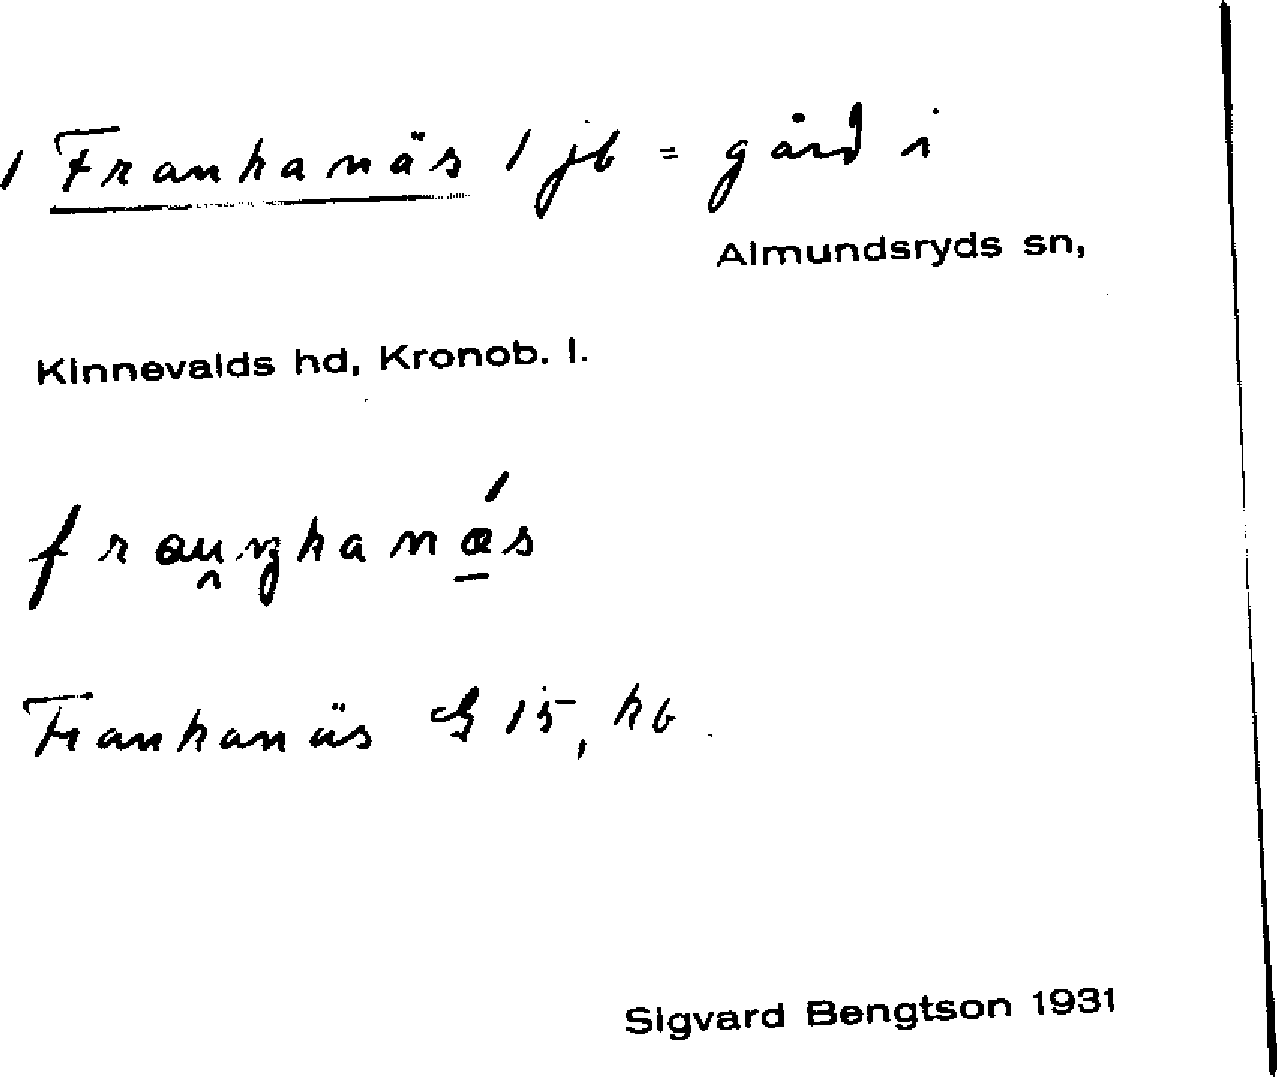 / Frankanäs / jb = gård i
Almundsryds sn,
Kinnevalds hd, Kronob. l.
frau̯ŋkanǽ̱s
Frankanäs G 15, kb.
Sigvard Bengtson 1931